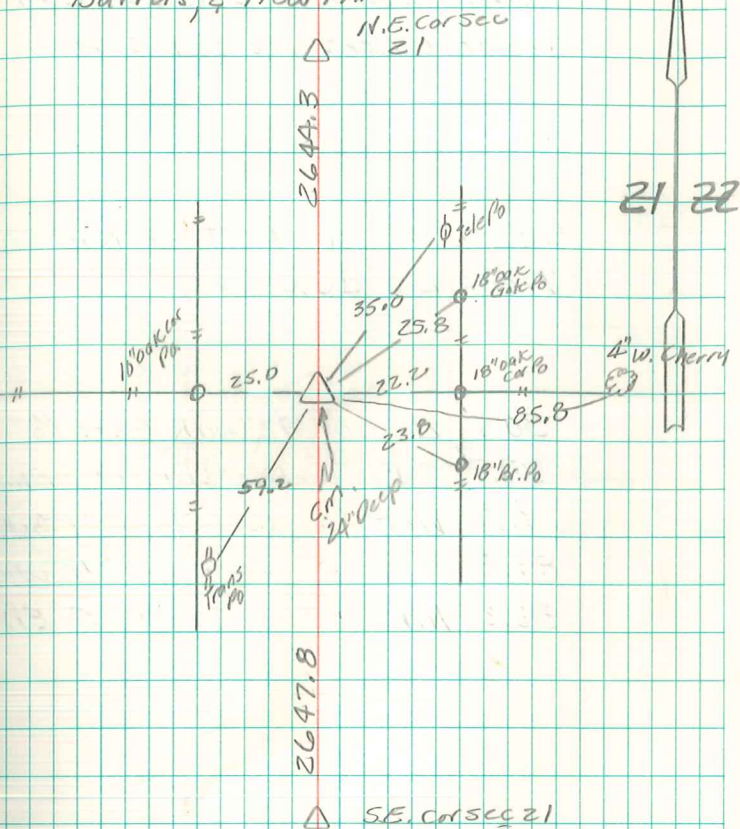 N.E. Cor Sec
21
2644.3
21 22
TelePo
18"oak
Gate Po
35.0
25.8
16"oak Cor
Po.
25.0
22.2
18"oak
Cor Po
4" W. Cherry
85.8
23.8
18"Br. Po
59.2
C.M.
24" Deep
Trans
Po
2647.8
S.E. Cor Sec 21